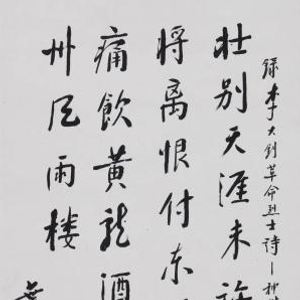 录李大钊革命烈士诗一神
壮别天涯未许
将离恨付东
痛飲黄龙酒
州风雨楼